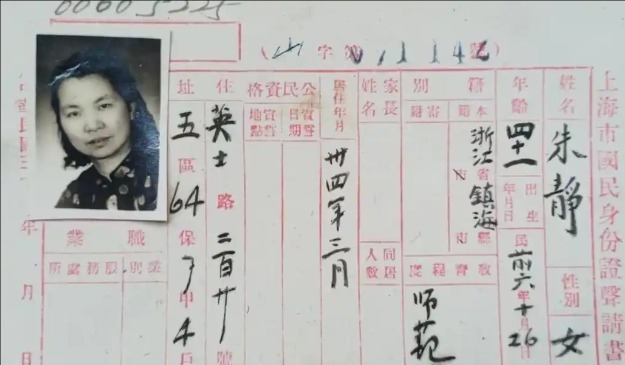 00005225
(山字第01142號)
上海市國民身份證聲請書
姓名 朱靜 性別 女
年齡 四十一 出生年月日 民前六年十月26日
籍別 本籍 浙江省鎮海縣市 寄籍 教育程度 师范
家長姓名 同居人數
居住年月 卅四年三月
公民資格 宣誓日期 宣誓地點
住址 英士路二百廿號
五區64保了甲4戶
職業 業別 服務處所
年月日